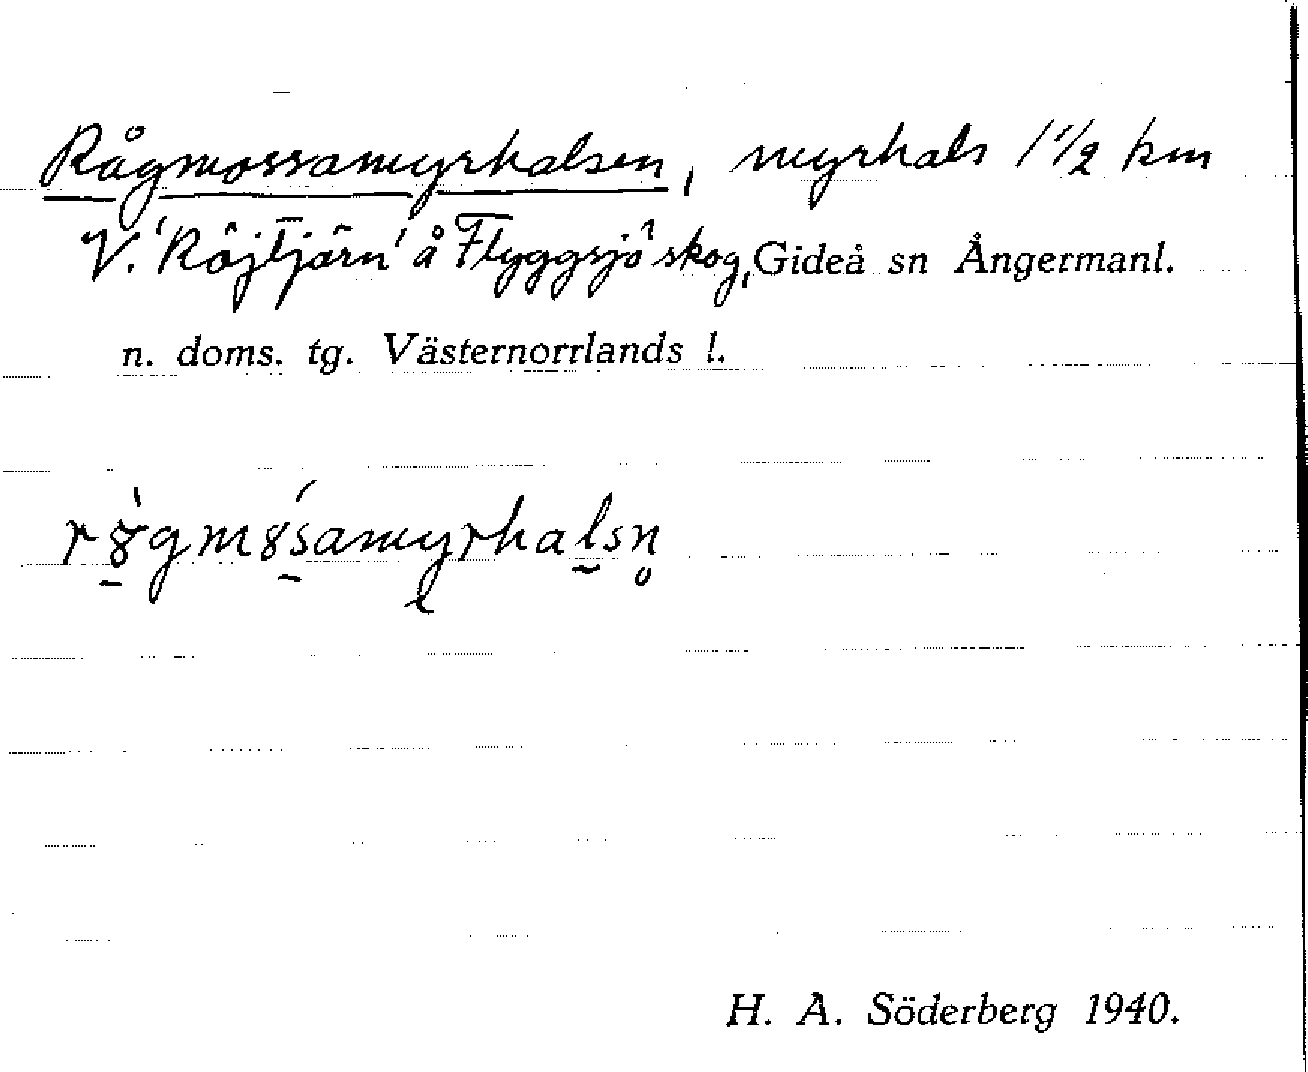 Rågmossamyrhalsen, myrhals 1 1/2 km
V. 'Röjtjärn' å Flyggsjö skog, Gideå sn Ångermanl.
n. doms. tg. Västernorrlands l.
H. A. Söderberg 1940.